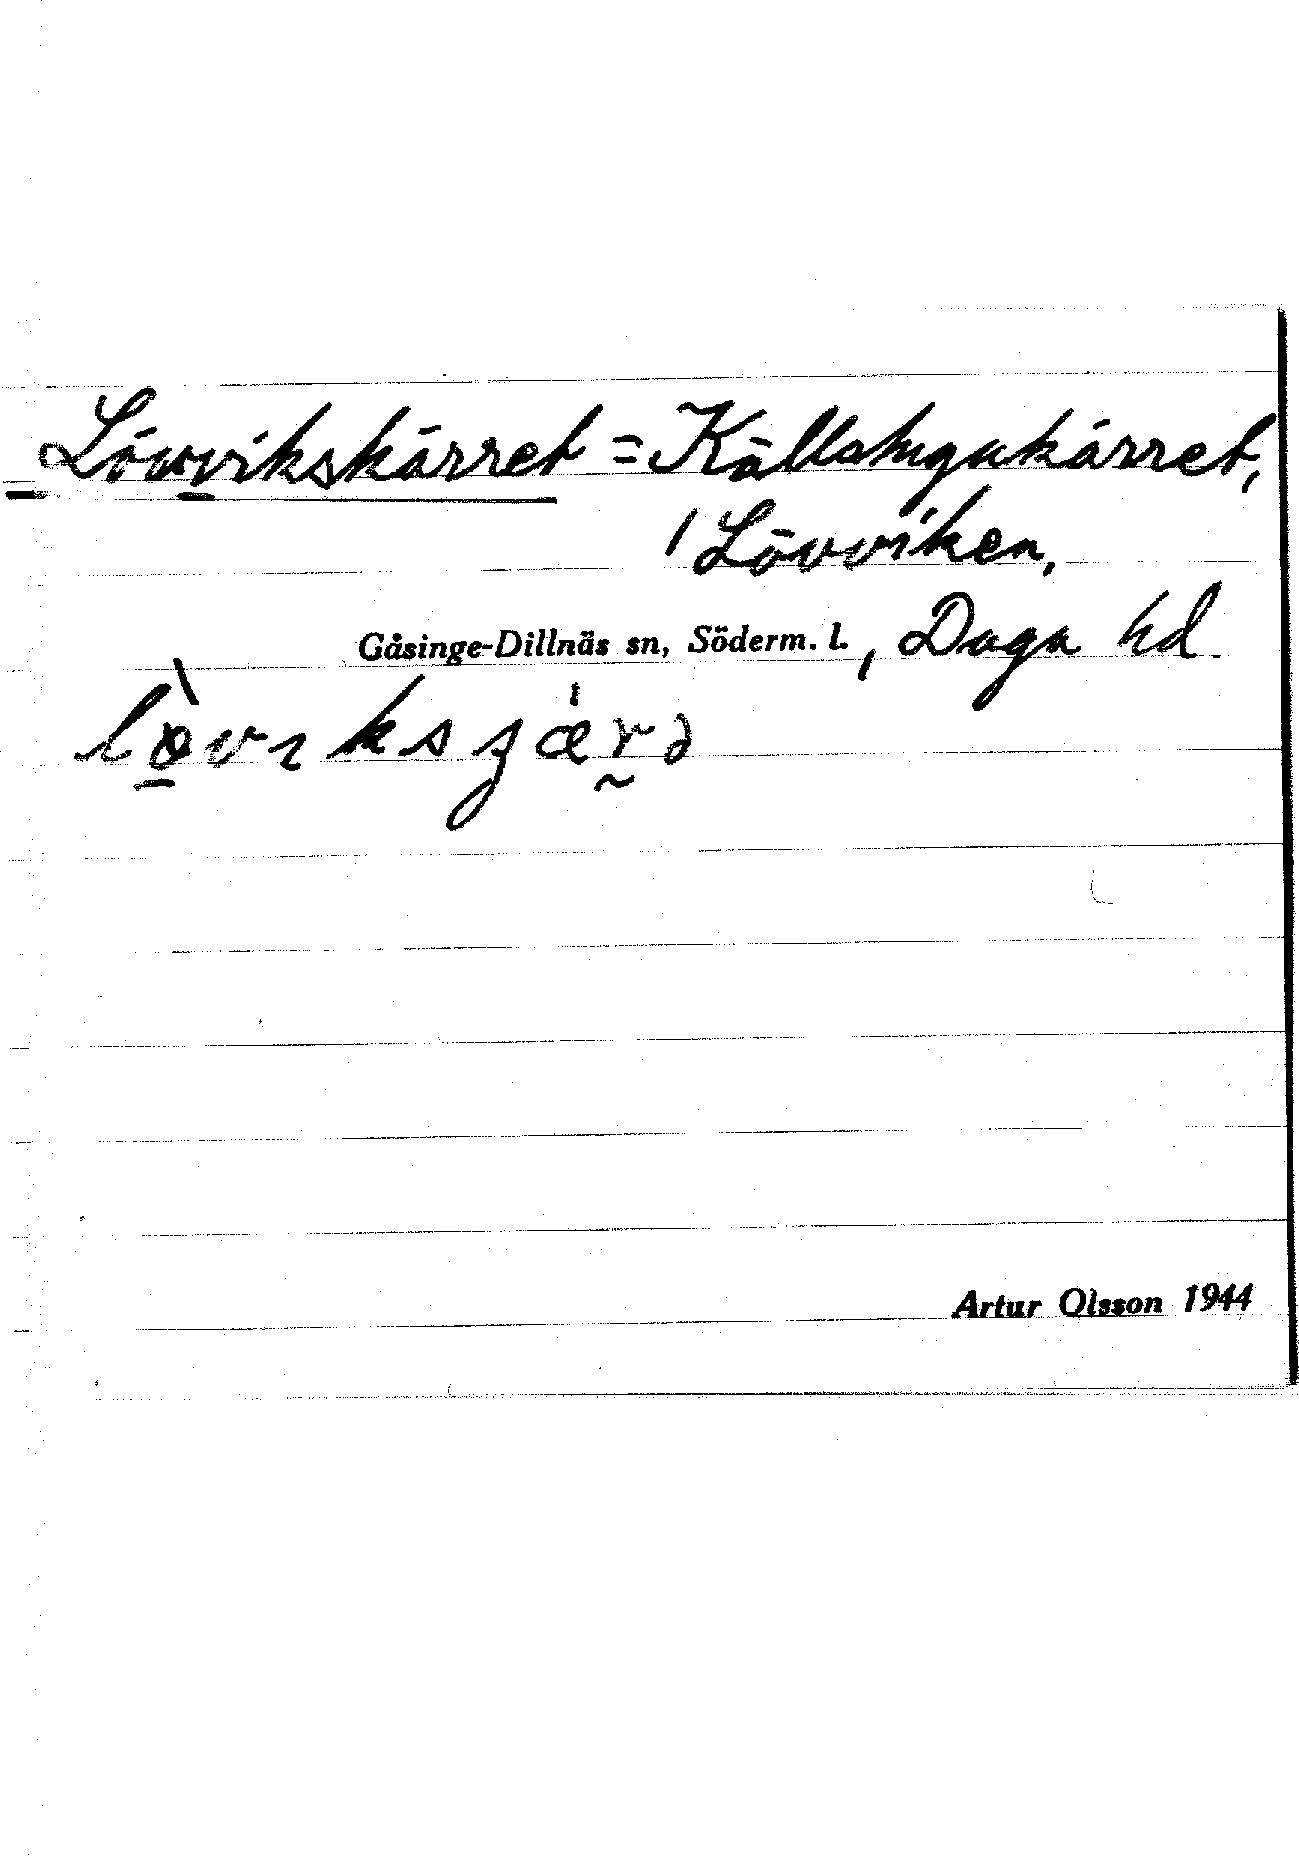 Lövvikskärret = Källstugukärret,
/ Lövviken,
Gåsinge-Dillnäs sn, Söderm. l., Daga hd
Artur Olsson 1944